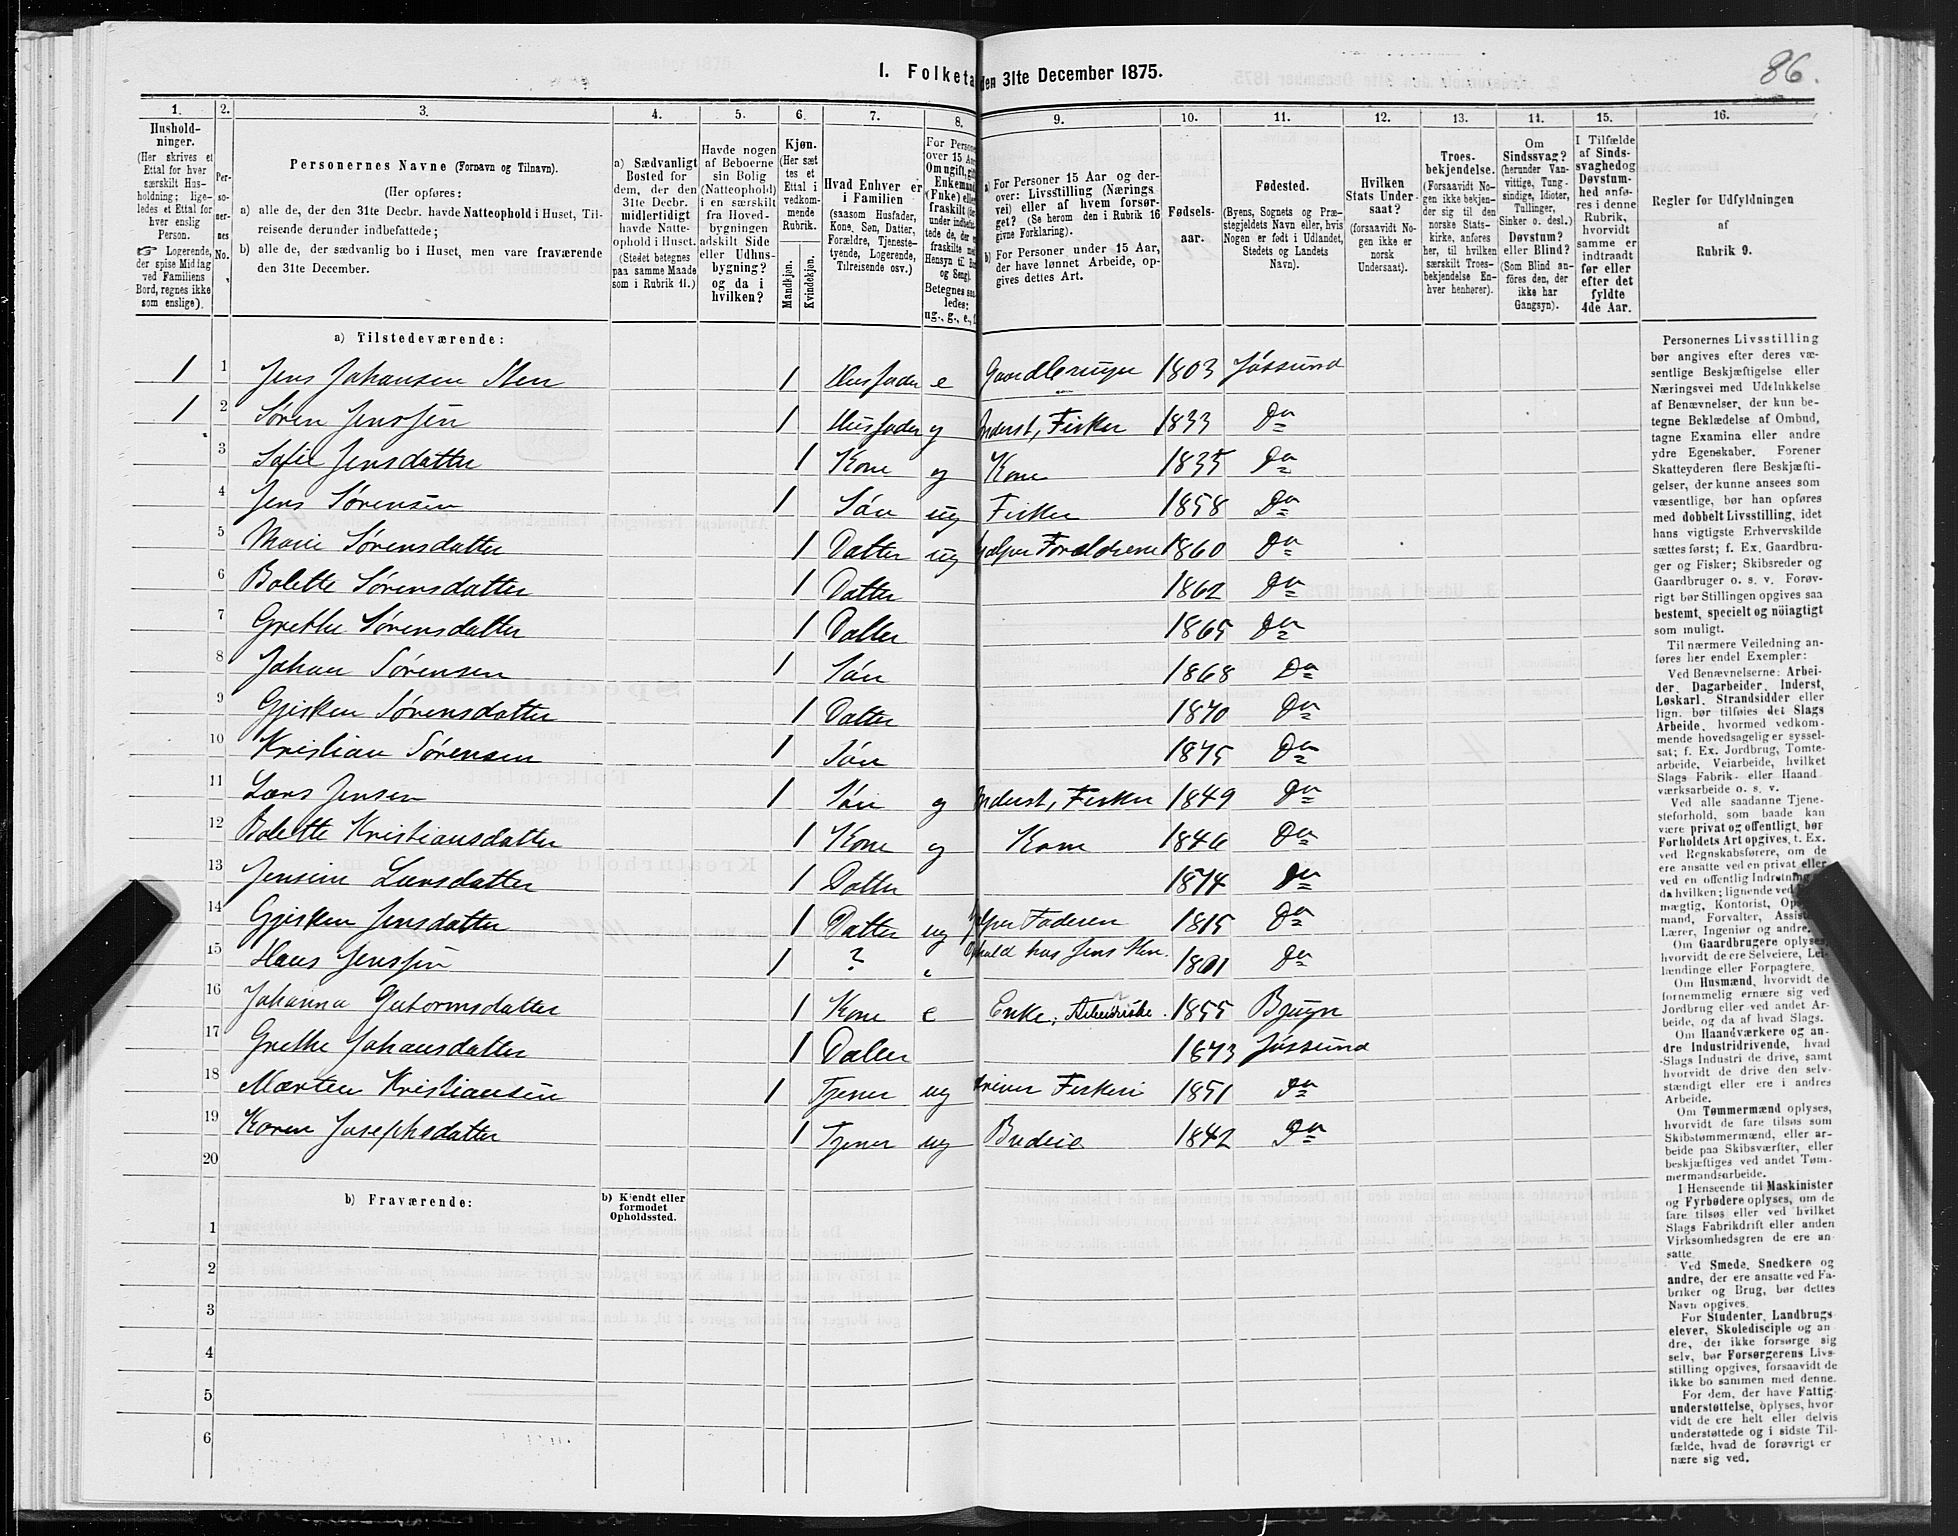 86.
1. Folketa den 31te December 1875.
1. 2. 3. 4. 5. 6. 7. 8. 9. 10. 11. 12. 13. 14. 15. 16.
Hushold-
ninger.
(Her skrives et
Ettal for hver
særskilt Hus-
holdning; lige-
ledes et Ettal for
hver enslig
Person.
☞ Logerende,
der spise Middag
ved Familiens
Bord, regnes ikke
som enslige).
Per-
so-
ner-
nes
No.
Personernes Navne (Fornavn og Tilnavn).
(Her opføres:
a) alle de, der den 31te Decbr. havde Natteophold i Huset, Til-
reisende derunder indbefattede;
b) alle de, der sædvanlig bo i Huset, men vare fraværende
den 31te December.
a) Sædvanligt
Bosted for
dem, der den
31te Decbr.
midlertidigt
havde Natte-
ophold i Huset.
(Stedet betegnes
paa samme Maade
som i Rubrik 11.)
Havde nogen
af Beboerne
sin Bolig
(Natteophold)
i en særskilt
fra Hoved-
bygningen
adskilt Side
eller Udhus-
bygning?
og da i
hvilken?
Kjøn.
(Her sæt
tes et
Ettal i
vedkom-
mende
Rubrik.
Mandkjøn.
Kvindekjøn.
Hvad Enhver er
i Familien
(saasom Husfader,
Kone, Søn, Datter,
Forældre, Tjeneste-
tyende, Logerende,
Tilreisende osv.)
For Persone
over 15 Aar
Om ugift, gift
Enkemand
(Enke) elle
fraskilt (der
under indbefat-
tede de, der e
fraskilte med
Hensyn til Bo
og Seng).
Betegnes saa
ledes:
ug., g., e., f.
a) For Personer 15 Aar og der-
over: Livsstilling (Nærings
vei) eller af hvem forsør-
get? (Se herom den i Rubrik 16
givne Forklaring).
b) For Personer under 15 Aar,
der have lønnet Arbeide, op-
gives dettes Art.
Fødsels-
aar.
Fødested.
(Byens, Sognets og Præ-
stegjeldets Navn eller, hvis
Nogen er født i Udlandet,
Stedets og Landets
Navn).
Hvilken
Stats Under-
saat?
(forsaavidt No-
gen ikke er
norsk
Undersaat).
Troes-
bekjendelse.
(Forsaavidt No-
gen ikke bekjen-
der sig til den
norske Stats-
kirke, anføres
her, til hvilken
særskilt Troes-
bekjendelse En-
hver henhører).
Om
Sindssvag?
(herunder Van-
vittige, Tung-
sindige, Idioter,
Tullinger,
Sinker o. desl.)
Døvstum?
eller Blind?
(Som Blind an-
føres den, der
ikke har
Gangsyn).
I Tilfælde
af Sinds-
svaghed og
Døvstum-
hed anfø-
res i denne
Rubrik,
hvorvidt
samme er
indtraadt
før eller
efter det
fyldte
4de Aar.
Regler for Udfyldningen
af
Rubrik 9.
a) Tilstedeværende:
1 1 Jens Johansen Sten 1 Husfader e Gaardbruger 1803 Jøssund
1 2 Søren Jenssen 1 Husfader g Inderst, Fisker 1833 Do
3 Sofie Jensdatter 1 Kone g Kone 1835 Do
4 Jens Sørensen 1 Søn ug Fisker 1858 Do
5 Marie Sørensdatter 1 Datter ug hjælper Forældrene 1860 Do
6 Bolette Sørensdatter 1 Datter 1862 Do
7 Grethe Sørensdatter 1 Datter 1865 Do
8 Johan Sørensen 1 Søn 1868 Do
9 Gjisken Sørensdatter 1 Datter 1870 Do
10 Kristian Sørensen 1 Søn 1875 Do
11 Lars Jensen 1 Søn g Inderst, Fisker 1849 Do
12 Bolette Kristiansdatter 1 Kone g Kone 1846 Do
13 Jensine Larsdatter 1 Datter 1874 Do
14 Gjisken Jensdatter 1 Datter ug hjelper Faderen 1815 Do
15 Hans Jenssen 1 ? e Ophold hos Jens Sten. 1801 Do
16 Johanna Gutormsdatter 1 Kone e Enke, Arbeiderske. 1855 Bjugn
17 Grethe Johansdatter 1 Datter 1873 Jøssund
18 Morten Kristiansen 1 Tjener ug driver Fiskeri 1851 Do
19 Karen Josephsdatter 1 Tjener ug Budeie 1842 Do
20
b) Fraværende:
b) Kjendt eller
formodet
Opholdssted.
1
2
3
4
5
6
Personernes Livsstilling
bør angives efter deres væ-
sentlige Beskjæftigelse eller
Næringsvei med Udelukkelse
af Benævnelser, der kun be-
tegne Beklædelse af Ombud,
tagne Examina eller andre
ydre Egenskaber. Forener
Skatteyderen flere Beskjæfti-
gelser, der kunne ansees som
væsentlige, bør han opføres
med dobbelt Livsstilling, idet
hans vigtigste Erhvervskilde
sættes først; f. Ex. Gaardbru-
ger og Fisker; Skibsreder og
Gaardbruger o. s. v. Forøv-
rigt bør Stillingen opgives saa
bestemt, specielt og nöiagtigt
som muligt.
Til nærmere Veiledning an-
føres her endel Exempler:
Ved Benævnelserne: Arbei-
der, Dagarbeider, Inderst,
Løskarl, Strandsidder eller
lign. bør tilføies det Slags
Arbeide, hvormed vedkom-
mende hovedsagelig er syssel-
sat; f. Ex. Jordbrug, Tomte-
arbeide, Veiarbeide, hvilket
Slags Fabrik- eller Haand
værksarbeide o. s. v.
Ved alle saadanne Tjene-
steforhold, som baade kan
være privat og offentligt, bør
Forholdets Art opgives, t. Ex.
ved Regnskabsførere, om de
ere ansatte ved en privat eller
ved en offentlig Indretning
da hvilken; lignende ved
mægtig, Kontorist, Op
mand, Forvalter, Assist
Lærer, Ingeniør og andre.
Om Gaardbrugere oplyses,
hvorvidt de ere Selveiere, Lei-
lændinge eller Forpagtere.
Om Husmænd, hvorvidt de
fornemmelig ernære sig ved
Jordbrug eller ved andet Ar-
beide, og da af hvad Slags.
Om Haandværkere og an-
dre Industridrivende, hvad
Slags Industri de drive, samt
hvorvidt de drive den selv-
stændigt eller ere i andres
Arbeide.
Om Tømmermænd oplyses,
hvorvidt de fare tilsøs som
Skibstømmermænd, eller ar-
beide paa Skibsværfter, eller
beskjæftiges ved andet Tøm-
mermandsarbeide.
I Henseende til Maskinister
og Fyrbødere oplyses, om de
fare tilsøs eller ved hvilket
Slags Fabrikdrift eller anden
Virksomhedsgren de ere an-
satte.
Ved Smede, Snedkere og
andre, der ere ansatte ved Fa-
briker og Brug, bør dettes
Navn opgives.
For Studenter, Landbrugs
elever, Skoledisciple og an-
dre, der ikke forsørge sig
selv, bør Forsørgerens Livs-
stilling opgives, forsaavidt de
ikke bo sammen med denne.
For dem, der have Fattig-
understøttelse, oplyses, hvor
vidt de ere helt eller delvis
understøttede og i sidste Til-
fælde, hvad de forøvrigt er
nære sig ved.